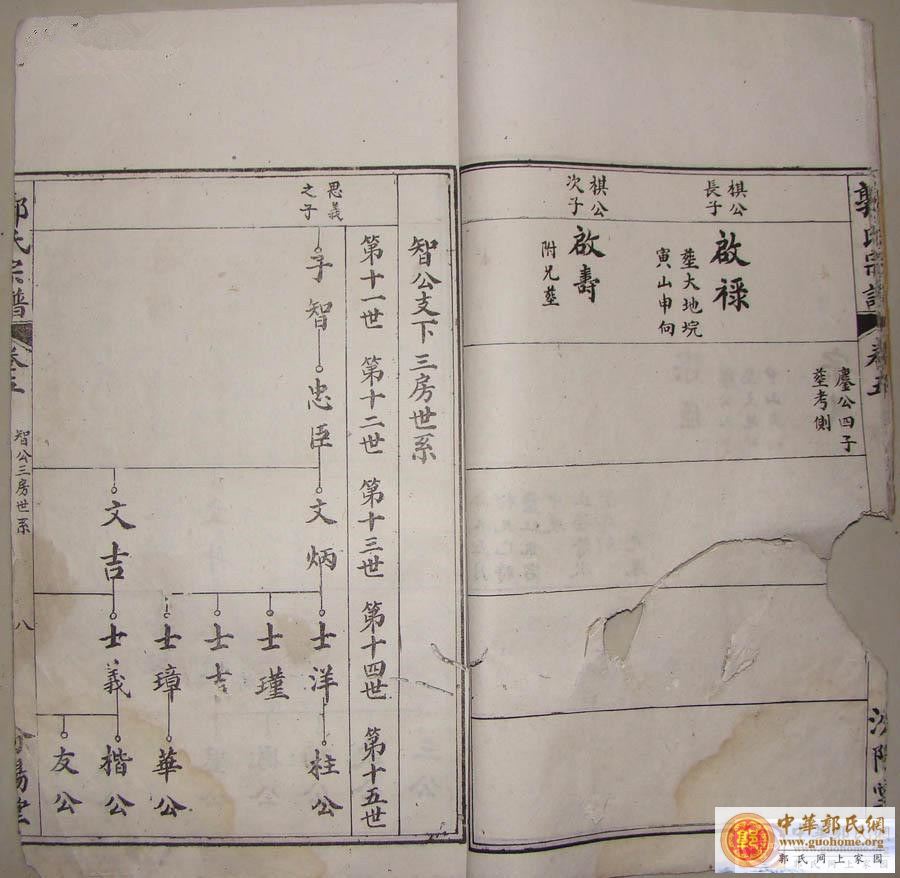 郭氏宗譜
卷五
汾陽堂
鏖公四子
塟考側
棋公
長子
啟祿
塟大地垸
寅山申向
棋公
次子
啟壽
附兄塟
智公支下三房世系
第十一世
第十二世
第十三世
第十四世
第十五世
思義
之子
子智
忠臣
文炳
文吉
士洋
士瑾
士吉
士璋
士義
柱公
華公
楷公
友公
郭氏宗譜
卷五
智公三房世系
八
汾陽堂
中華郭氏網
www.guohome.org
郭氏网上家园